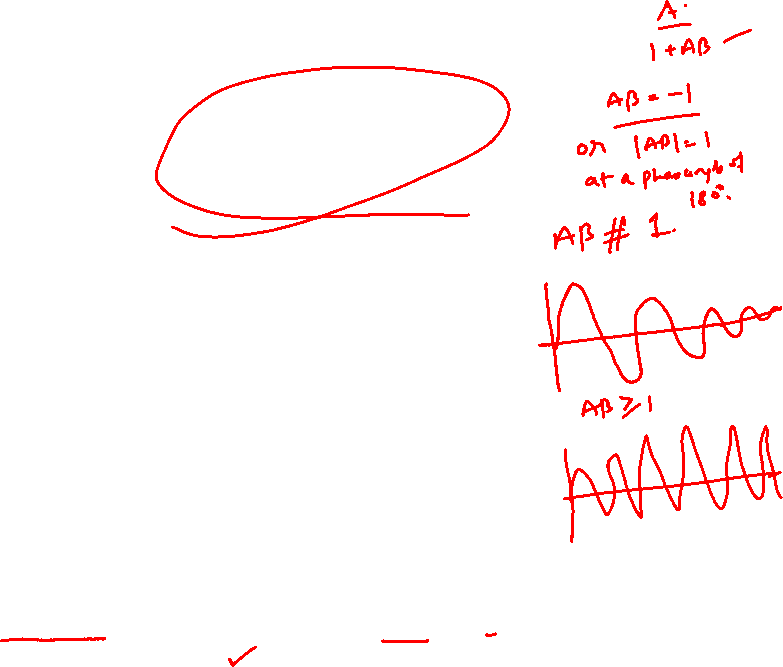 A.
1 + AB
AB = -1
or |AB| = 1
at a phase angle of
180°.
AB # 1.
AB ≥ 1